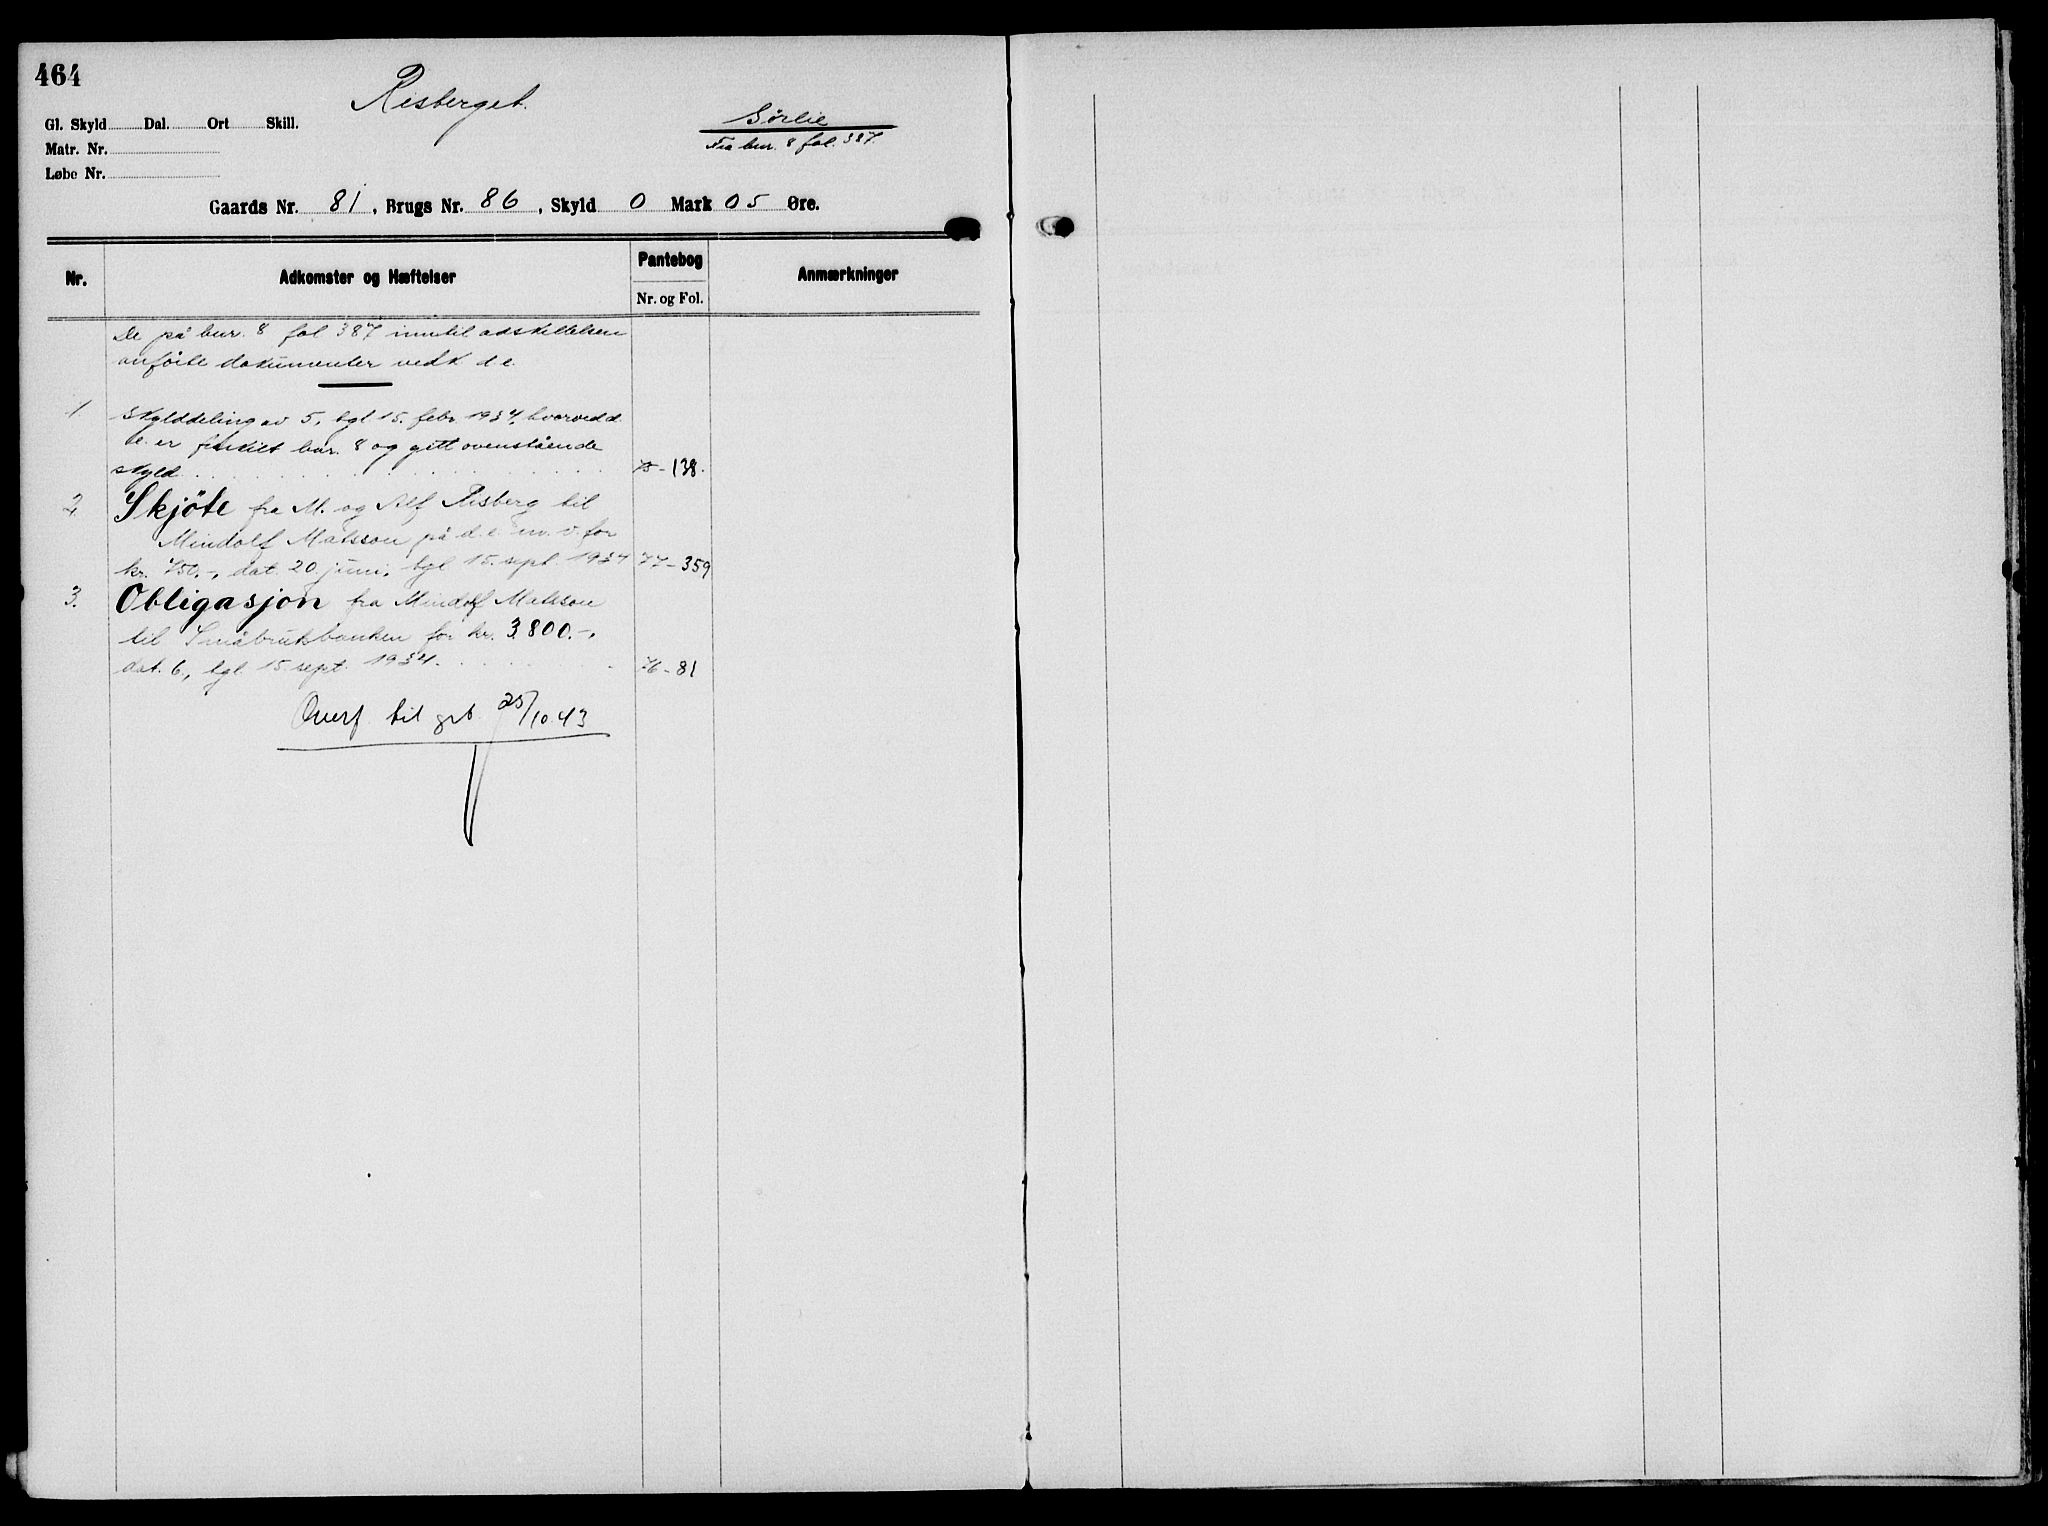 464
Risberget.
Gl. Skyld Dal. Ort Skill.
Sørlie
Matr. Nr.
Fra bnr. 8 fol. 387.
Løbe Nr.
Gaards Nr. 81, Brugs Nr. 86, Skyld 0 Mark 05 Øre.
Nr. Adkomster og Hæftelser Pantebog Nr. og Fol. Anmærkninger
De på bnr. 8 fol 387 inntil adskillelsen
anførte dokumenter vedk d e.
1. Skylddeling av 5, tgl 15. febr 1934, hvorved d.
e. er fraskilt bnr. 8 og gitt ovenstående
skyld 75-138.
2. Skjöte fra M. og Alf Risberg til
Mindolf Matsson på d. e. m. v. for
kr. 750.-, dat. 20. juni, tgl 15. sept. 1934 77-359
3. Obligasjon fra Mindolf Matsson
til Småbrukbanken for kr. 3800.-,
dat. 6., tgl 15. sept. 1934. 76-81
Overf. til grb. 25/10.43